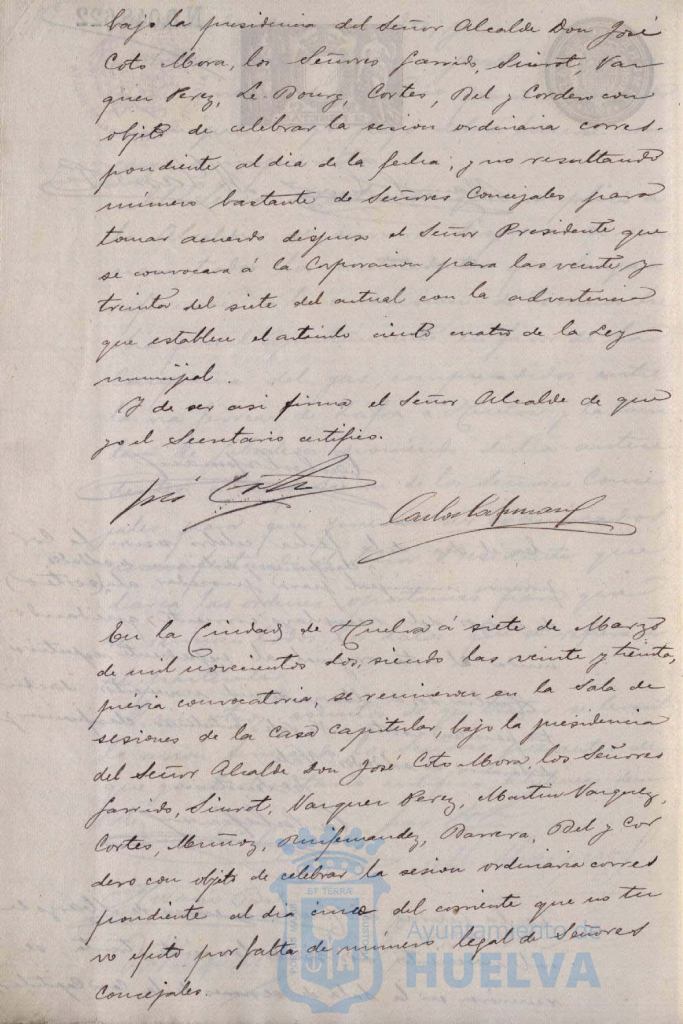 bajo la presidencia del Señor Alcalde Don José
Coto Mora, los Señores Garrido, Siurot, Vaz
quez Perez, Le Bourg, Cortes, Bel y Cordero con
objeto de celebrar la sesion ordinaria corres-
pondiente al dia de la fecha; y no resultando
número bastante de Señores Concejales para
tomar acuerdo dispuso el Señor Presidente que
se convocara á la Corporacion para las veinte y
treinta del siete del actual con la advertencia
que establece el articulo ciento cuatro de la Ley
municipal.
Y de ser asi firma el Señor Alcalde de que
yo el Secretario certifico.
José Coto
Carlos
En la Ciudad de Huelva á siete de Marzo
de mil novecientos dos, siendo las veinte y treinta,
prévia convocatoria, se reunieron en la Sala de
sesiones de la Casa Capitular, bajo la presidencia
del Señor Alcalde Don José Coto Mora, los Señores
Garrido, Siurot, Vazquez Perez, Martin Vazquez,
Cortes, Muñoz, Ruifernandez, Barrera, Bel y Cor
dero con objeto de celebrar la sesion ordinaria corres
pondiente al dia cinco del corriente que no tu
vo efecto por falta de número legal de Señores
Concejales.
ET TERRÆ
Ayuntamiento de
HUELVA